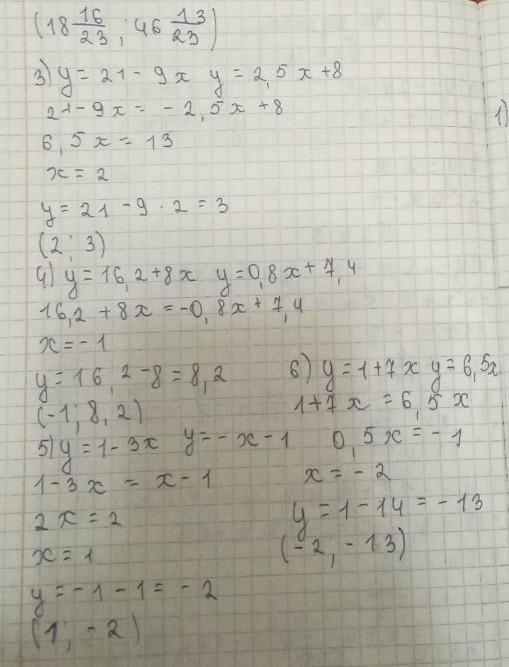 (18 16/23 ; 46 13/23)
3) y = 21 - 9x y = 2,5x + 8
21 - 9x = - 2,5x + 8
6,5x = 13
x = 2
y = 21 - 9 · 2 = 3
(2; 3)
4) y = 16,2 + 8x y = 0,8x + 7,4
16,2 + 8x = -0,8x + 7,4
x = -1
y = 16,2 - 8 = 8,2
(-1; 8,2)
5) y = 1 - 3x y = - x - 1
1 - 3x = x - 1
2x = 2
x = 1
y = -1 - 1 = - 2
(1; -2)
6) y = 1 + 7x y = 6,5x
1 + 7x = 6,5x
0,5x = - 1
x = - 2
y = 1 - 14 = - 13
(-2; -13)
1)